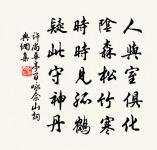 人與室俱化
陰森松竹寒
時時見孤鶴
疑此守神丹
許尚華亭百詠余山詞
典綱集